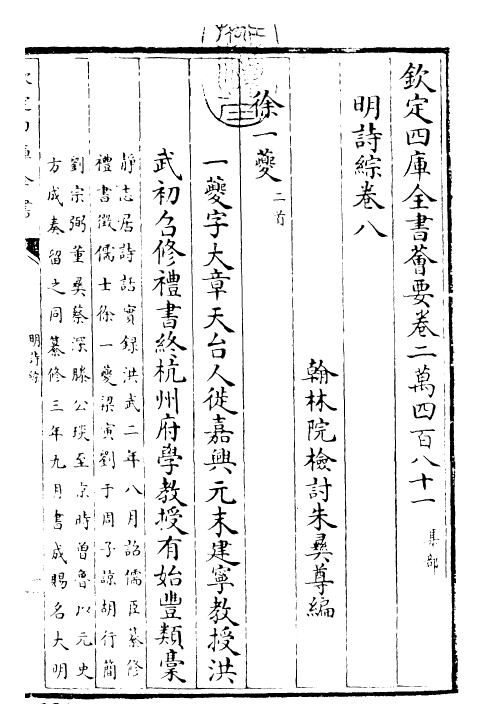 欽定四庫全書薈要卷二萬四百八十一 集部
明詩綜卷八
翰林院檢討朱彛尊編
徐一夔 二首
一夔字大章天台人徙嘉興元末建寧教授洪
武初召修禮書終杭州府學教授有始豐類稾
靜志居詩話實録洪武二年八月詔儒臣纂修
禮書徵儒士徐一夔梁寅劉于周子諒胡行簡
劉宗弼董彛蔡深滕公琰至京時曽魯以元史
方成奏留之同纂修三年九月書成賜名大明
明詩綜